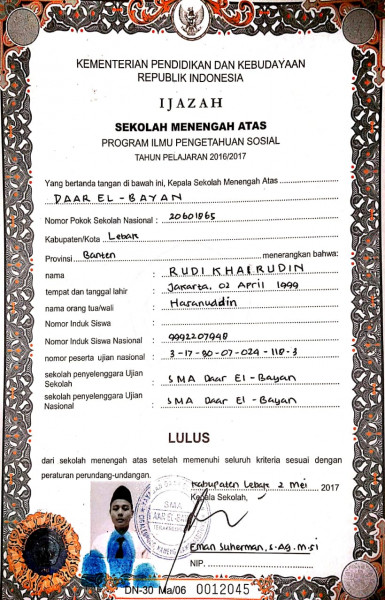 KEMENTERIAN PENDIDIKAN DAN KEBUDAYAAN
REPUBLIK INDONESIA
IJAZAH
SEKOLAH MENENGAH ATAS
PROGRAM ILMU PENGETAHUAN SOSIAL
TAHUN PELAJARAN 2016/2017
Yang bertanda tangan di bawah ini, Kepala Sekolah Menengah Atas
DAAR EL - BAYAN
Nomor Pokok Sekolah Nasional : 20601865
Kabupaten/Kota : Lebak
Provinsi : Banten menerangkan bahwa:
nama : RUDI KHAIRUDIN
tempat dan tanggal lahir : Jakarta, 02 April 1999
nama orang tua/wali : Haranuddin
Nomor Induk Siswa :
Nomor Induk Siswa Nasional : 9992207948
nomor peserta ujian nasional : 3-17-30-07-024-118-3
sekolah penyelenggara Ujian Sekolah : SMA Daar El - Bayan
sekolah penyelenggara Ujian Nasional : SMA Daar El - Bayan
LULUS
dari sekolah menengah atas setelah memenuhi seluruh kriteria sesuai dengan
peraturan perundang-undangan.
Kabupaten Lebak 2 Mei 2017
Kepala Sekolah,
SMA
Eman Suherman, S.Ag. M.Si
NIP.
DN-30 Ma/06 0012045